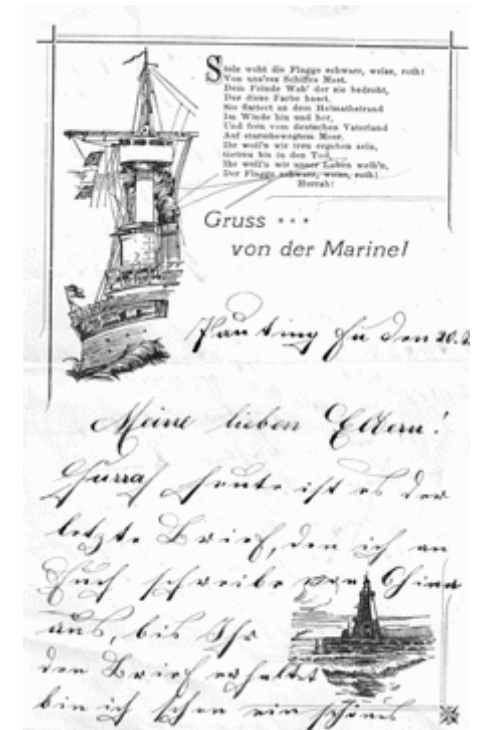 Stolz weht die Flagge schwarz, weiss, roth!
Von uns'res Schiffes Mast.
Dem Feinde Weh' der sie bedroht,
Der diese Farbe hasst.
Sie flattert an dem Heimathstrand
Im Winde hin und her,
Und fern vom deutschen Vaterland
Auf sturmbewegtem Meer.
Ihr woll'n wir treu ergeben sein,
Getreu bis in den Tod,
Ihr woll'n wir unser Leben weih'n,
Der Flagge schwarz, weiss, roth!
Hurrah!
Gruss ...
von der Marine!
Pauting fu den 20.
Meine lieben Eltern!
Hurra! heute ist es der
letzte Brief, den ich an
Euch schreibe von China
aus, bis Ihr
den Brief erhaltet
bin ich schon ein schönes